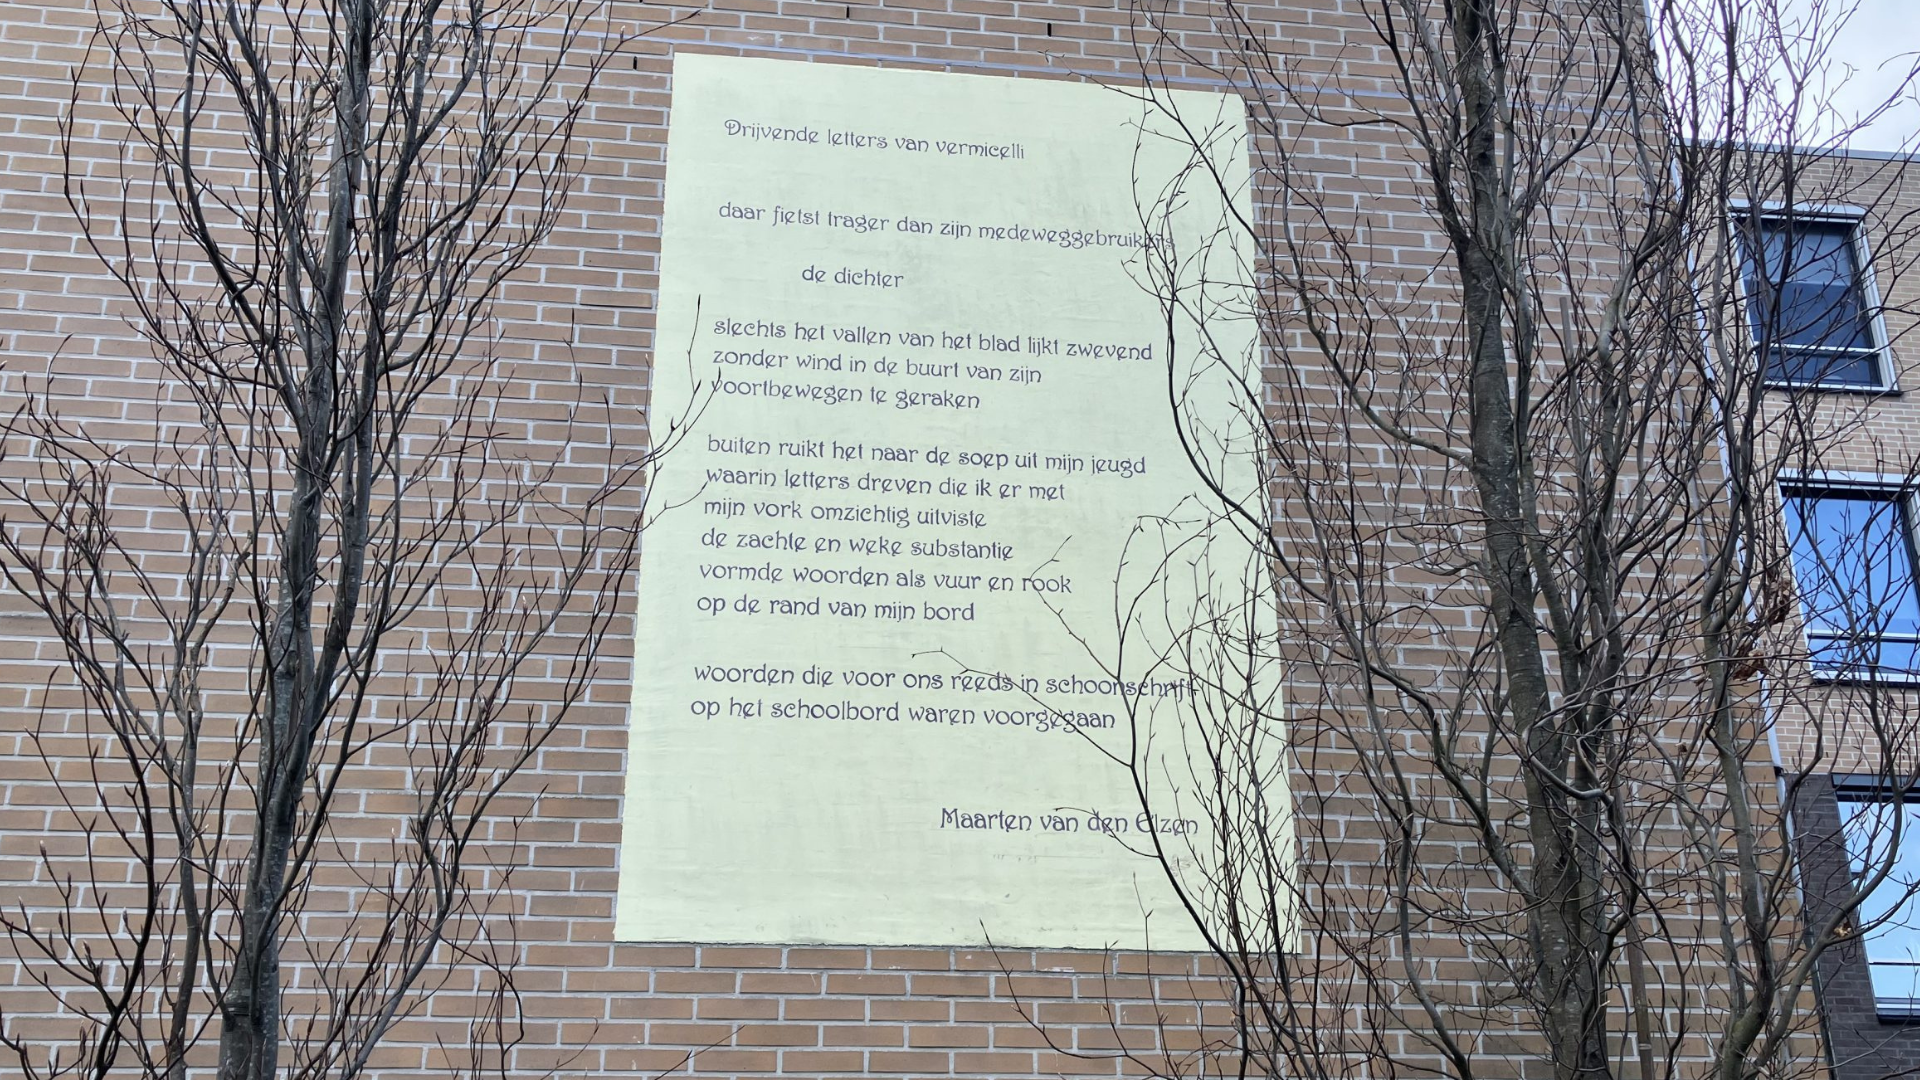 Drijvende letters van vermicelli
daar fietst trager dan zijn medeweggebruikers
de dichter
slechts het vallen van het blad lijkt zwevend
zonder wind in de buurt van zijn
voortbewegen te geraken
buiten ruikt het naar de soep uit mijn jeugd
waarin letters dreven die ik er met
mijn vork omzichtig uitviste
de zachte en weke substantie
vormde woorden als vuur en rook
op de rand van mijn bord
woorden die voor ons reeds in schoonschrift
op het schoolbord waren voorgegaan
Maarten van den Elzen